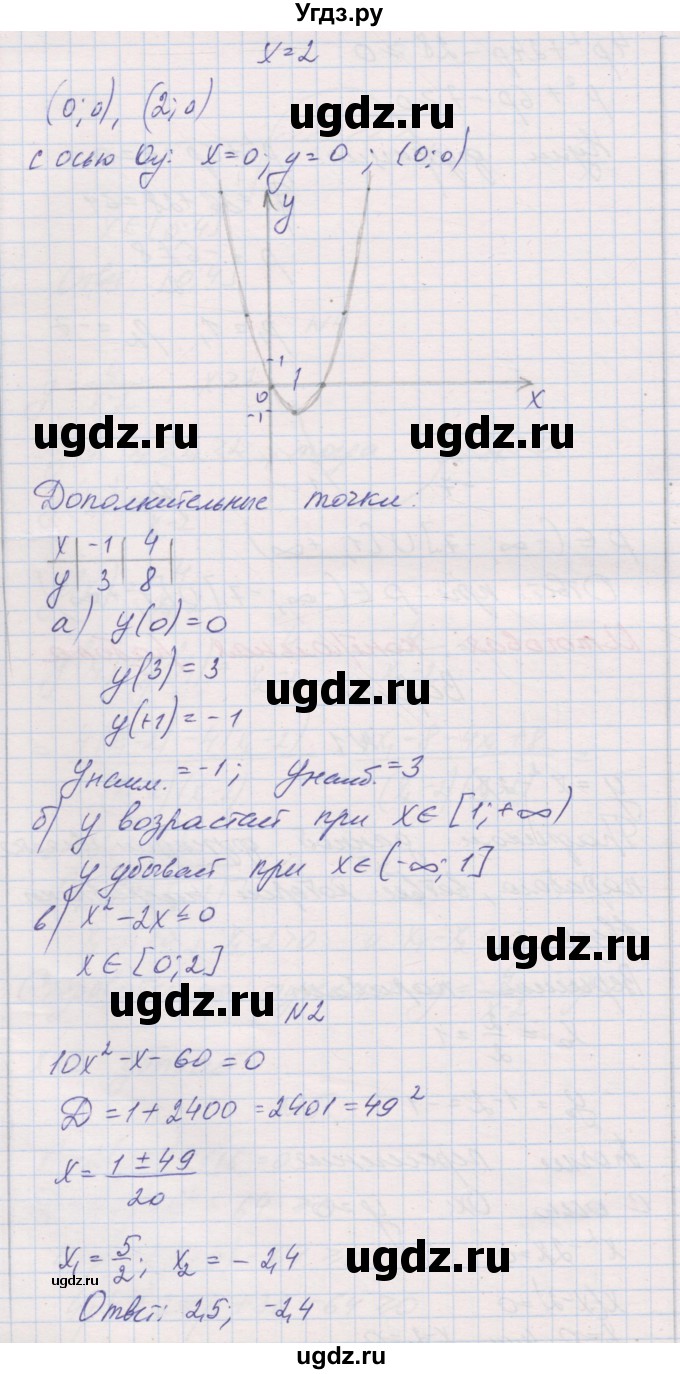 Угдз.ру
x=2
(0;0), (2;0)
с осью Oy: x=0; y=0; (0;0)
ugdz.ru
y
-1
1
0
-1
x
ugdz.ru ugdz.ru
Дополнительные точки:
x | -1 | 4 |
y | 3 | 8 |
а) y(0)=0
y(3)=3
ugdz.ru
y(+1)=-1
yнаим.=-1; yнаиб.=3
б) y возрастает при x∈[1;+∞)
y убывает при x∈(-∞;1]
в) x²-2x≤0
ugdz.ru
x∈[0;2]
ugdz.ru
N2
10x²-x-60=0
D=1+2400=2401=49²
x=(1±49)/20
x₁=5/2; x₂=-2,4
ugdz.ru
ugdz.ru
Ответ: 2,5; -2,4
ugdz.ru